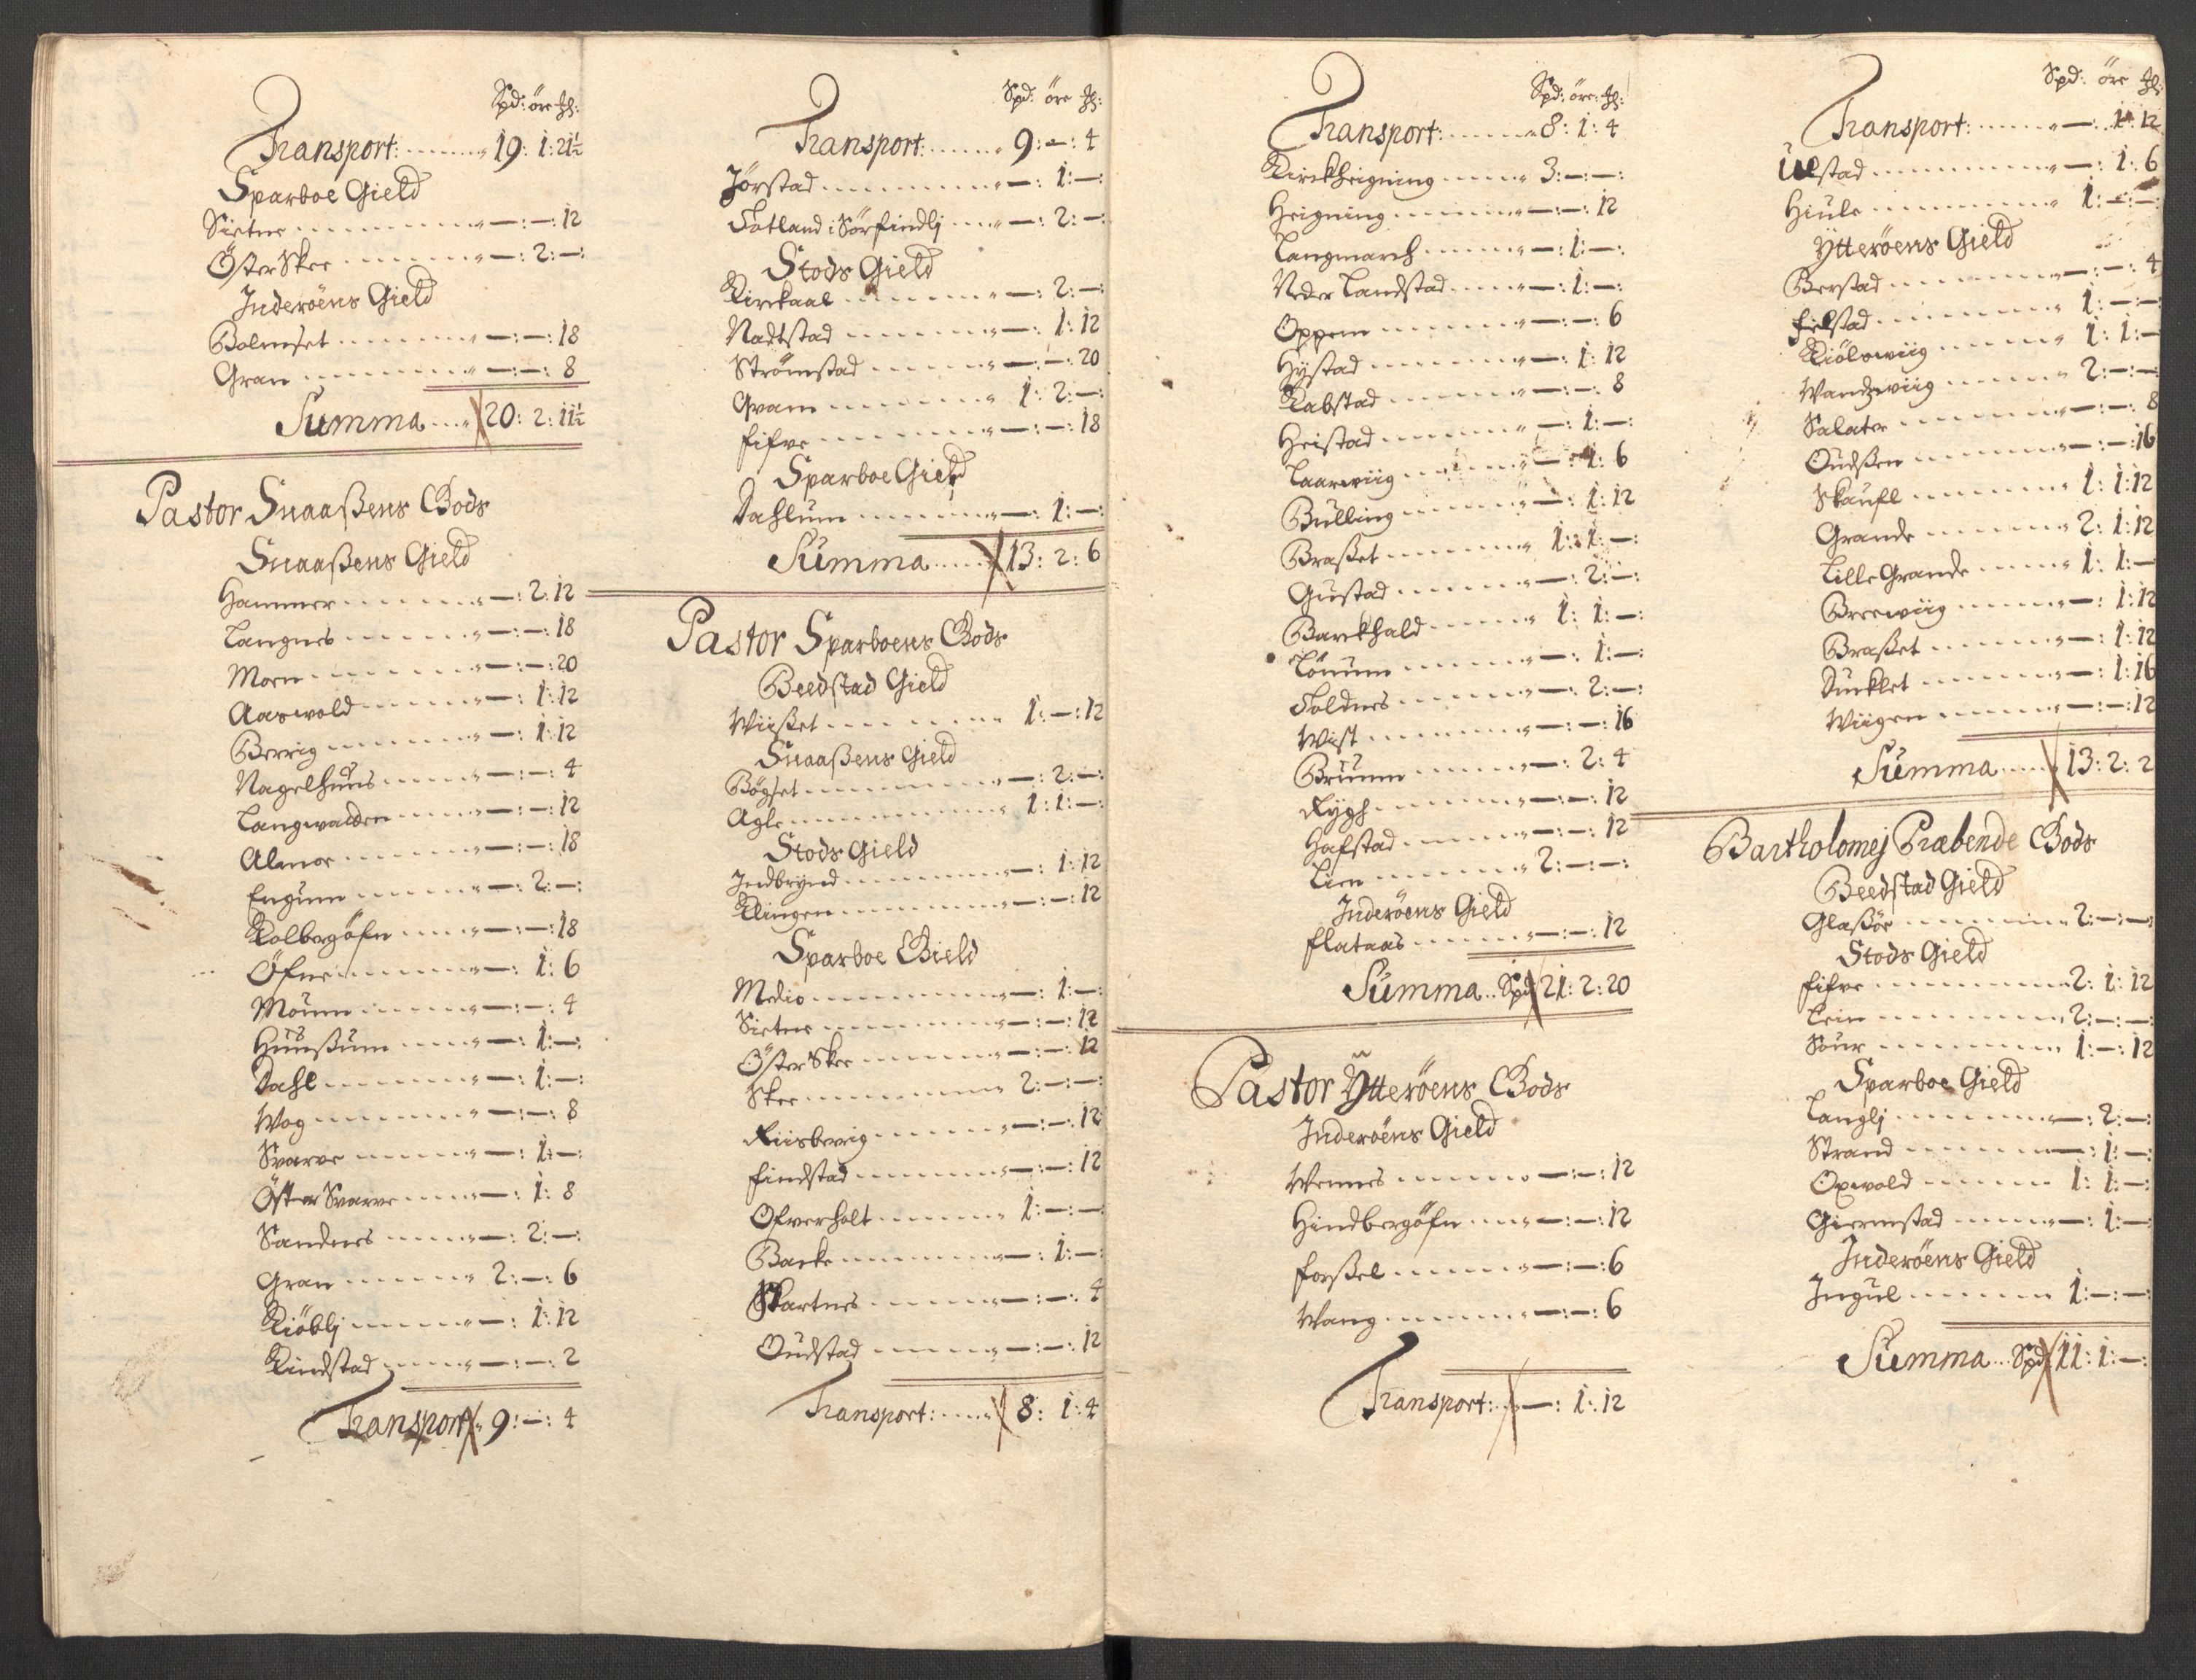 Spd: öre ₰:
Transport: 19: 1: 21½
Sparboe Gield
Sietne —: —: 12
Öster Skee —: 2: —:
Inderöens Gield
Bolenset —: —: 18
Gran —: —: 8
Summa 20: 2: 11½
Pastor Snaaßens Gods
Snaaßens Gield
Hammer —: 2: 12
Langnes —: —: 18
Moen —: —: 20
Aarwold —: 1: 12
Berrig —: 1: 12
Nagelhuus —: —: 4
Langwalden —: —: 12
Almoe —: —: 18
Engum —: 2: —:
Kolbergöfn —: —: 18
Öfne —: 1: 6
Moum —: —: 4
Huußum —: 1: —:
Dahl —: 1: —:
Wog —: —: 8
Svarve —: 1: —:
Öster Svarve —: 1: 8
Sandnes —: 2: —:
Gran 2: —: 6
Kiöblj —: 1: 12
Kindstad —: —: 2
Transport 9: —: 4
Spd: öre ₰:
Transport: 9: —: 4
Jörstad —: 1: —:
Fatland i Sörfindlj —: 2: —:
Stods Gield
Kirckaal —: 2: —:
Nadtstad —: 1: 12
Strömstad —: —: 20
Gvam 1: 2: —:
Fifve —: —: 18
Sparboe Gield
Dahlum —: 1: —:
Summa 13: 2: 6
Pastor Sparboens Gods
Beedstad Gield
Wiißet 1: —: 12
Snaaßens Gield
Bögset —: 2: —:
Agle 1: 1: —:
Stods Gield
Indbrynd —: 1: 12
Klingen —: —: 12
Sparboe Gield
Medio —: 1: —:
Sietne —: —: 12
Öster Skee —: —: 12
Skee 2: —: —:
Riisberrig —: —: 12
Findstad —: —: 12
Ofverholt 1: —: —:
Backe —: 1: —:
Skartnes —: —: 4
Oudstad —: —: 12
Transport: 8: 1: 4
Spd: öre: ₰:
Transport: 8: 1: 4
Kirckheigning 3: —: —:
Heigning —: —: 12
Langmarch —: 1: —:
Neder Landstad —: 1: —:
Oppem —: —: 6
Hystad —: 1: 12
Kabstad —: —: 8
Heistad —: 1: —:
Laarwiig —: 1: 6
Bulling —: 1: 12
Braßet 1: 1: —:
Gustad —: 2: —:
Barckhald 1: 1: —:
Lönum —: 1: —:
Foldnes —: 2: —:
Wist —: —: 16
Bruum —: 2: 4
Rygh —: —: 12
Hafstad —: —: 12
Lien 2: —: —:
Inderöens Gield
Flataas —: —: 12
Summa Spd 21: 2: 20
Pastor Ytteröens Gods
Inderöens Gield
Wennes —: —: 12
Hindbergöfn —: —: 12
Forßel —: —: 6
Wang —: —: 6
Transport: —: 1: 12
Spd: öre ₰:
Transport: —: 1: 12
Uelstad —: 1: 6
Hiule 1: —: —:
Ytteröens Gield
Berstad —: —: 4
Fielstad 1: —: —:
Kiölswiig 1: 1: —
Wandswiig 2: —: —:
Salater —: —: 8
Oudßen —: —: 16
Skaufl 1: 1: 12
Grande 2: 1: 12
Lille Grande 1: 1: —
Breewiig —: 1: 12
Braßet —: 1: 12
Duncklet —: 1: 16
Wiigen —: —: 12
Summa 13: 2: 2
Bartholomej Præbende Gods
Beedstad Gield
Glaßöe 2: —: —:
Stods Gield
Fifve 2: 1: 12
Lein 2: —: —:
Sour 1: —: 12
Sparboe Gield
Langlj —: 2: —:
Strand —: 1: —:
Oxwold 1: 1: —:
Giermstad —: 1: —:
Inderöens Gield
Ingul 1: —: —:
Summa Spd 11: 1: —: